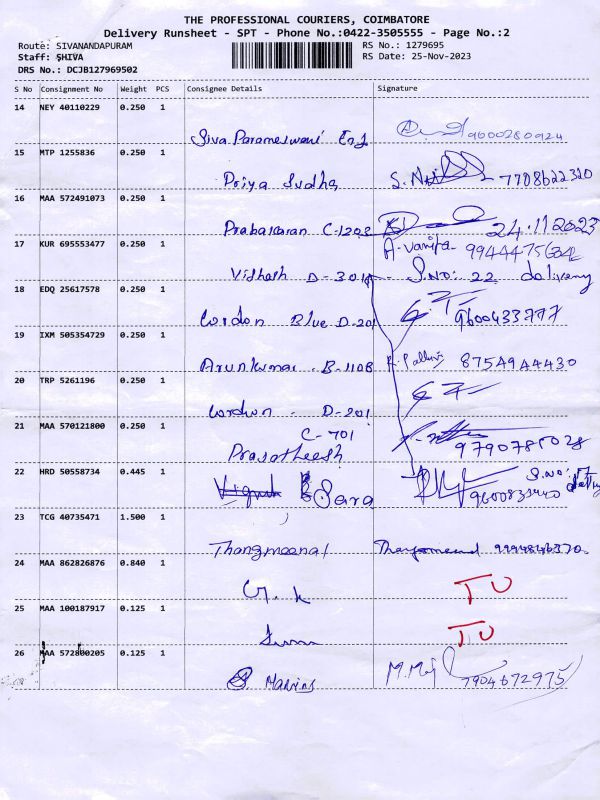 THE PROFESSIONAL COURIERS, COIMBATORE
Delivery Runsheet - SPT - Phone No.:0422-3505555 - Page No.:2
Route: SIVANANDAPURAM
RS No.: 1279695
Staff: SHIVA
RS Date: 25-Nov-2023
DRS No.: DCJB127969502
S No Consignment No Weight PCS Consignee Details Signature
14 NEY 40110229 0.250 1
Siva Parameswari Eng 9600280924
15 MTP 1255836 0.250 1
Priya Sudha 7708622320
16 MAA 572491073 0.250 1
Prabakaran C-1202 24.11.2023
17 KUR 695553477 0.250 1
A. Vanita
Vidhesh D-301 S.NO: 22 delivery
18 EDQ 25617578 0.250 1
Cordon Blue D-201 9600433777
19 IXM 505354729 0.250 1
Arunkumar - B-1108 8754944430
20 TRP 5261196 0.250 1
Cordon - D-201
21 MAA 570121800 0.250 1
C-701
Prasatheesh
22 HRD 50558734 0.445 1
Sara S.NO:
23 TCG 40735471 1.500 1
Thangmeenal
24 MAA 862826876 0.840 1
G. k TU
25 MAA 100187917 0.125 1
TU
26 MAA 572800205 0.125 1
7904672975